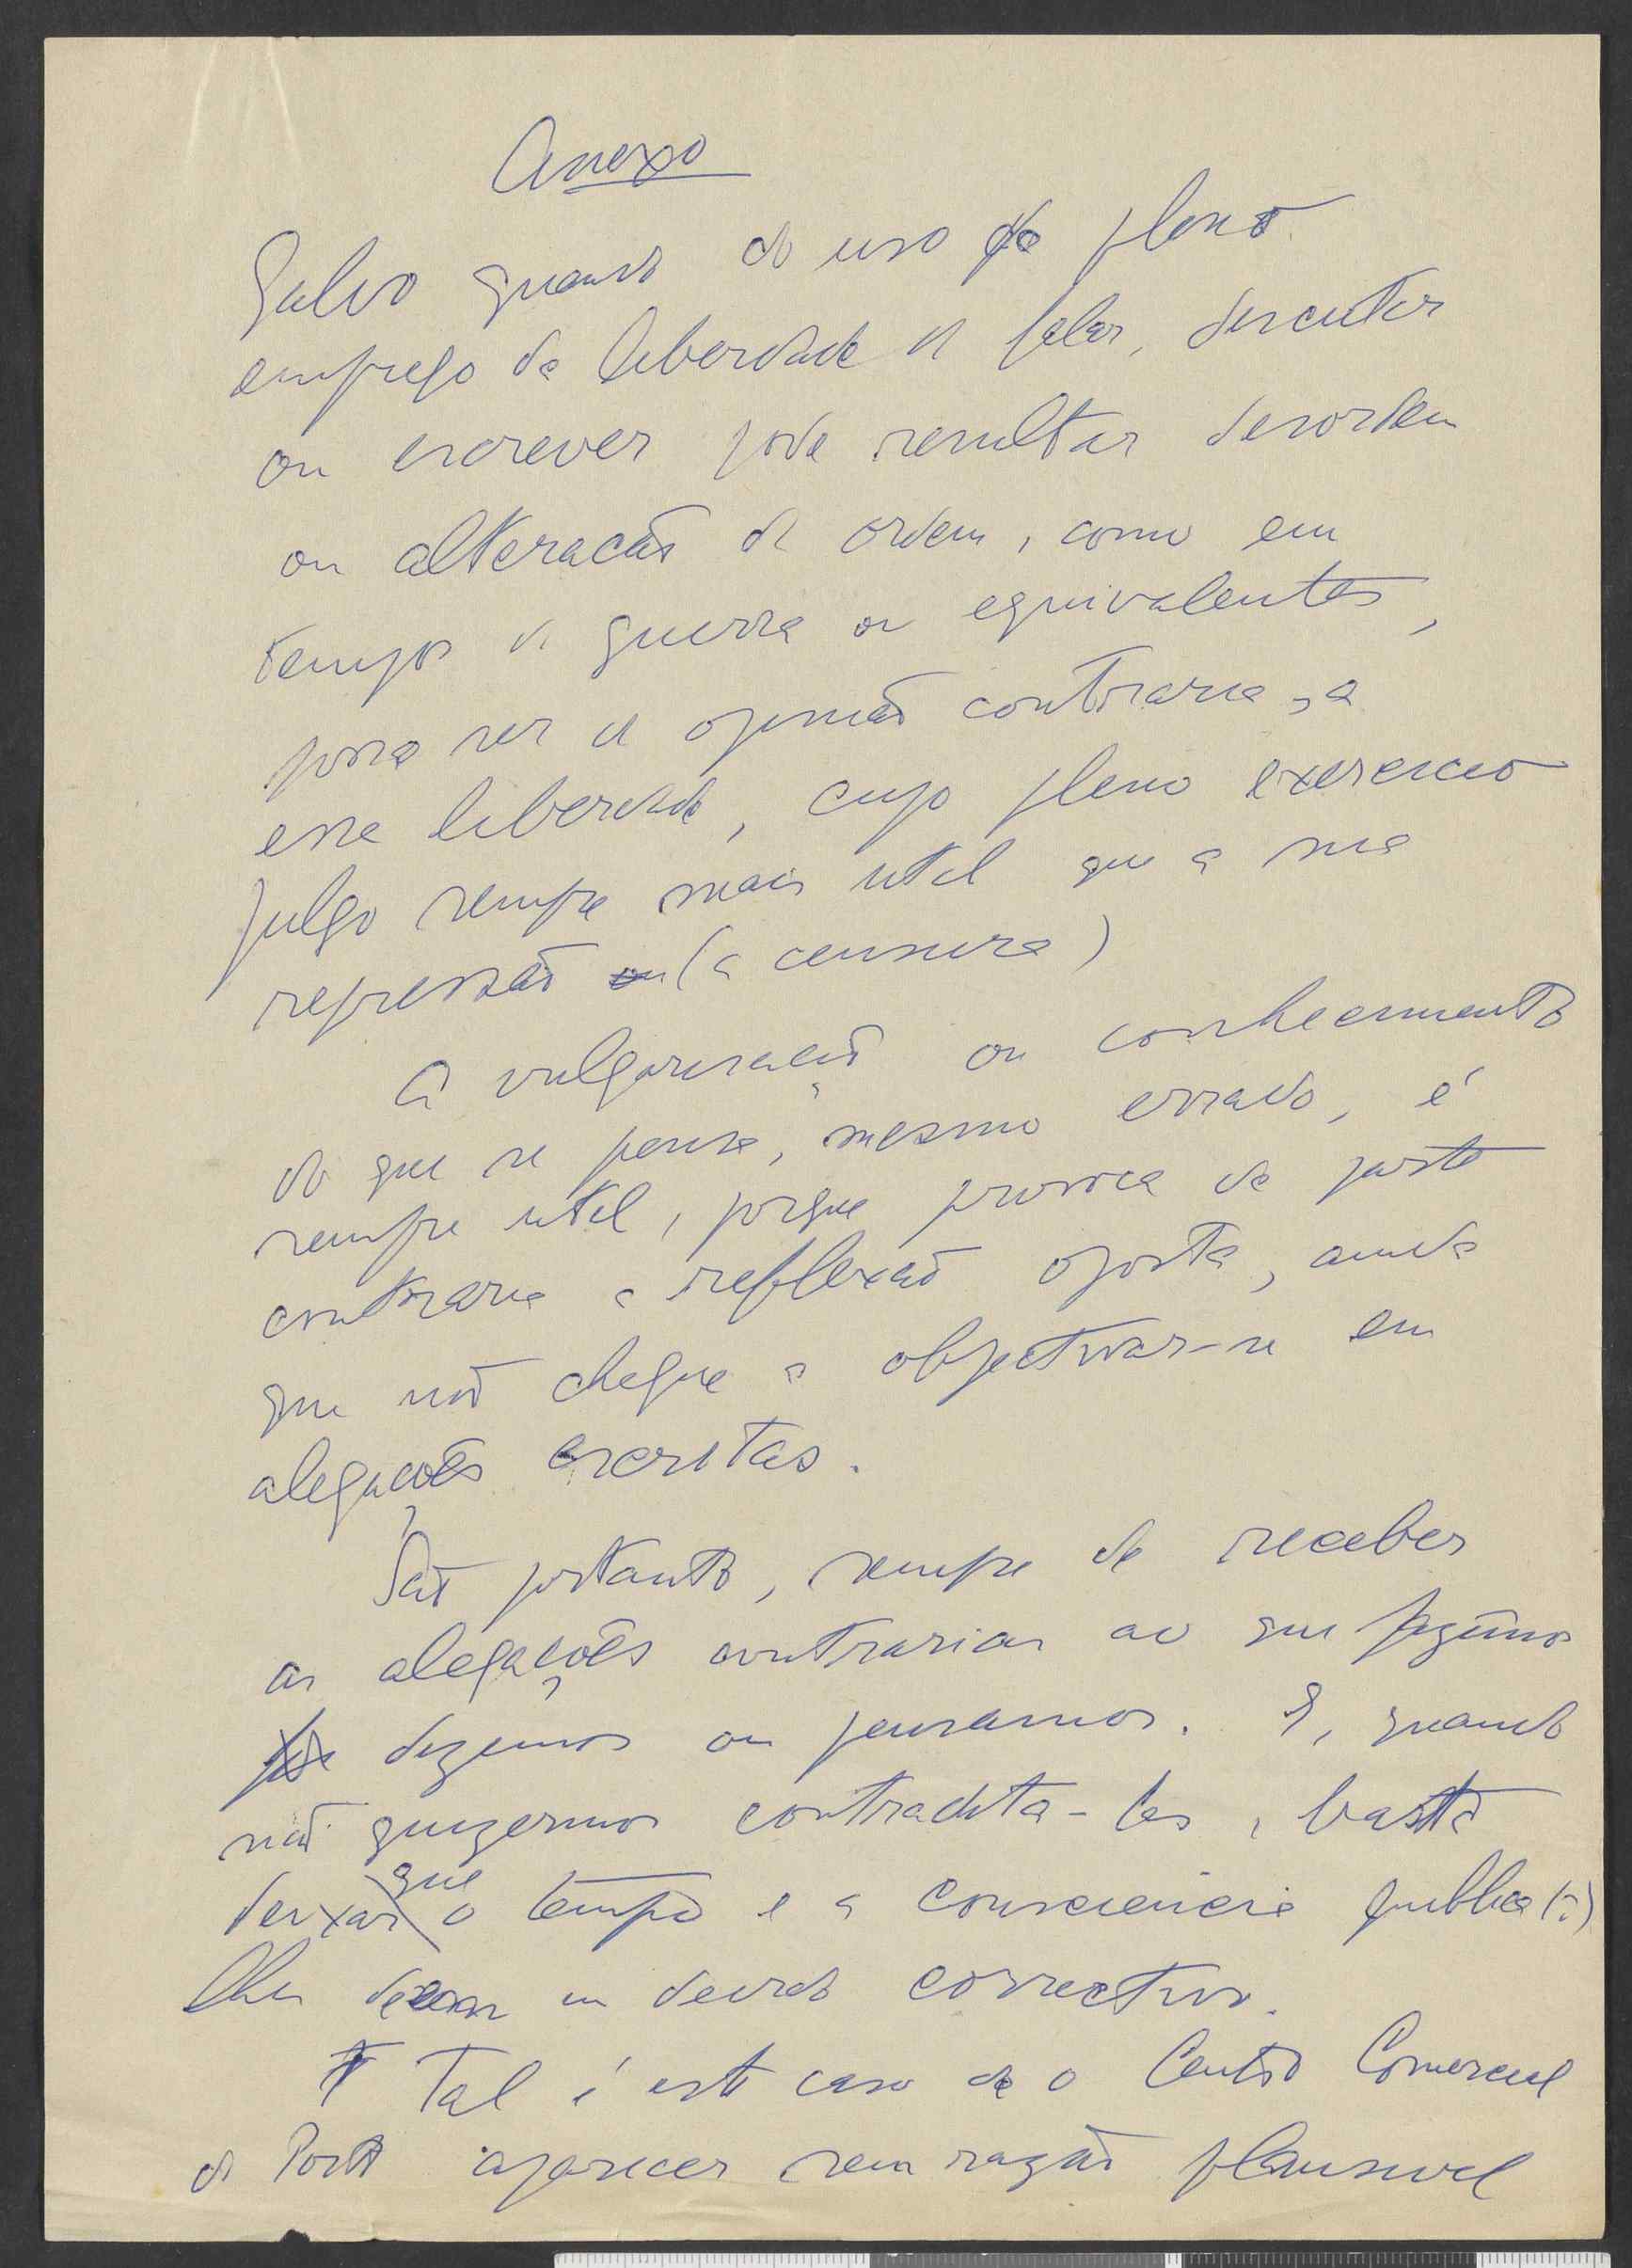 Anexo
Salvo quando do uso do pleno
emprego da liberdade de falar, discutir
ou escrever pode resultar desordem
ou alteração de ordem, como em
tempos de guerra ou equivalentes,
possa ser de opinião contraria, a
essa liberdade, cujo pleno exercicio
julgo sempre mais util que a sua
repressão (a censura)
A vulgarisação ou conhecimento
do que se pensa, mesmo errado, é
sempre util, porque provoca da parte
contraria a reflexão oposta, ainda
que não chegue a objectivar-se em
alegações escritas.
São portanto, sempre de receber
as alegações contrarias ao que fazemos
dizemos ou pensamos. E, quando
não quizermos contradita-las, basta
deixar que o tempo e a consciencia publica (?)
lhes deem o devido correctivo.
Tal é este caso de o Centro Comercial
do Porto aparecer sem razão plausivel